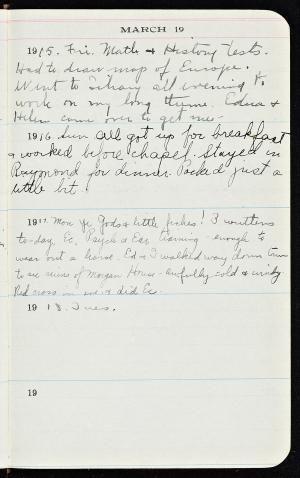 MARCH 19
1915. Fri. Math & History Tests.
Had to draw map of Europe.
Went to library all evening to
work on my long theme. Edna &
Helen came over to get me.
1916 Sun All got up for breakfast
& worked before chapel. Stayed in
Raymond for dinner. Packed just a
little bit.
1917. Mon Ye Gods & little fishes! 3 writtens
to-day, Ec. Psych & Eng. - enough to
wear out a horse. Ed & I walked way down town
to see ruins of Morgan House - awfully cold & windy.
Red cross in & did Ec.
19 18. Tues.
19